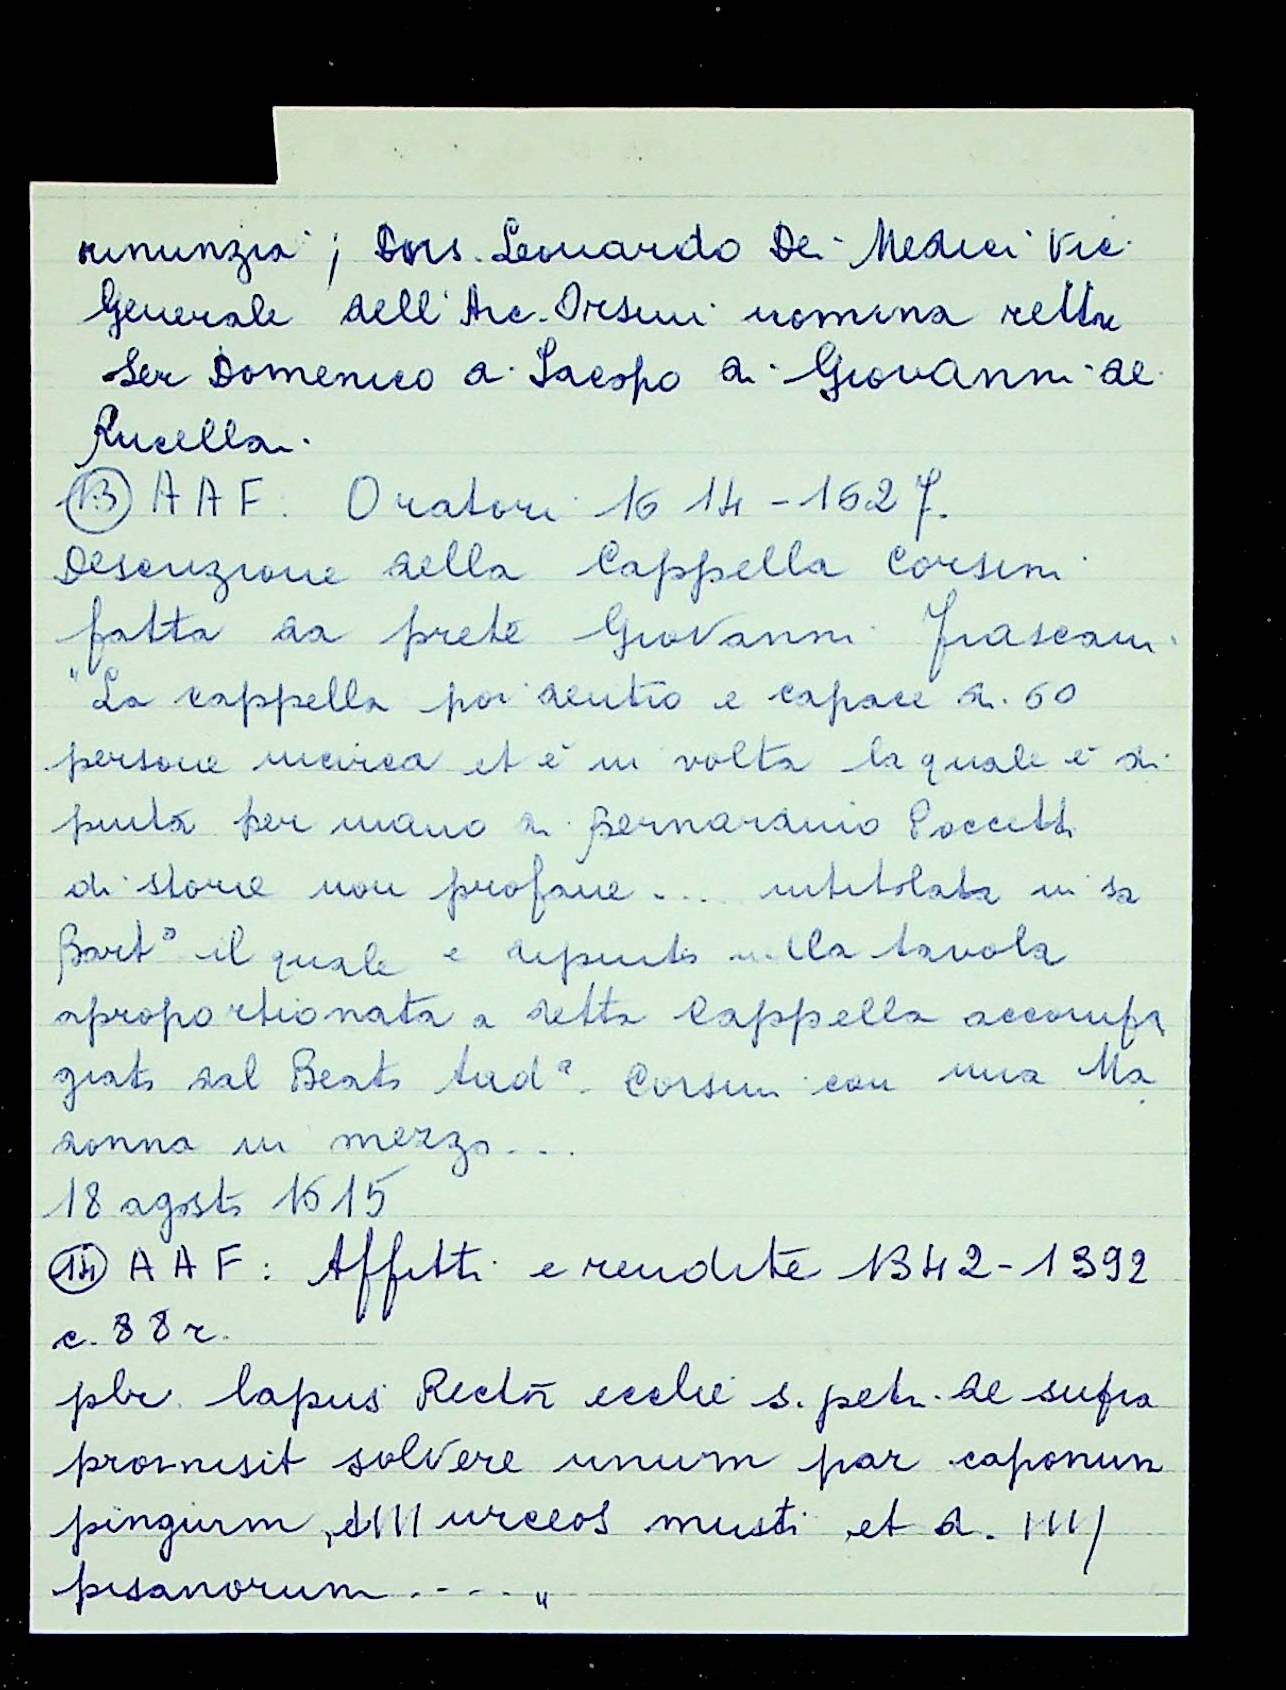 rinunzia; Dns. Leonardo Dei Medici Vic
Generale dell'Arc. Orsini nomina rettre
Ser Domenico di Jacopo di Giovanni de
Rucellai.
13 AAF. Oratori 1614-1627.
Descrizione della Cappella Corsini
fatta da prete Giovanni Frascani
"La cappella poi dentro e capace di 60
persone incirca et è in volta la quale è di
pinta per mano di Bernardino Poccetti
di storie non profane .... intitolata in sa
Bart° il quale e dipinto nella tavola
aproportionata a detta Cappella accompa
gnato dal Beato And.ª Corsini con una Ma
donna in mezzo...
18 agosto 1615
14 AAF: Affitti e rendite 1342-1392
c. 88r.
pbr. lapus Rector ecclie s. petri de supra
promisit solvere unum par caponum
pinguim, et III urceos musti, et d. IIIJ
pisanorum ...."